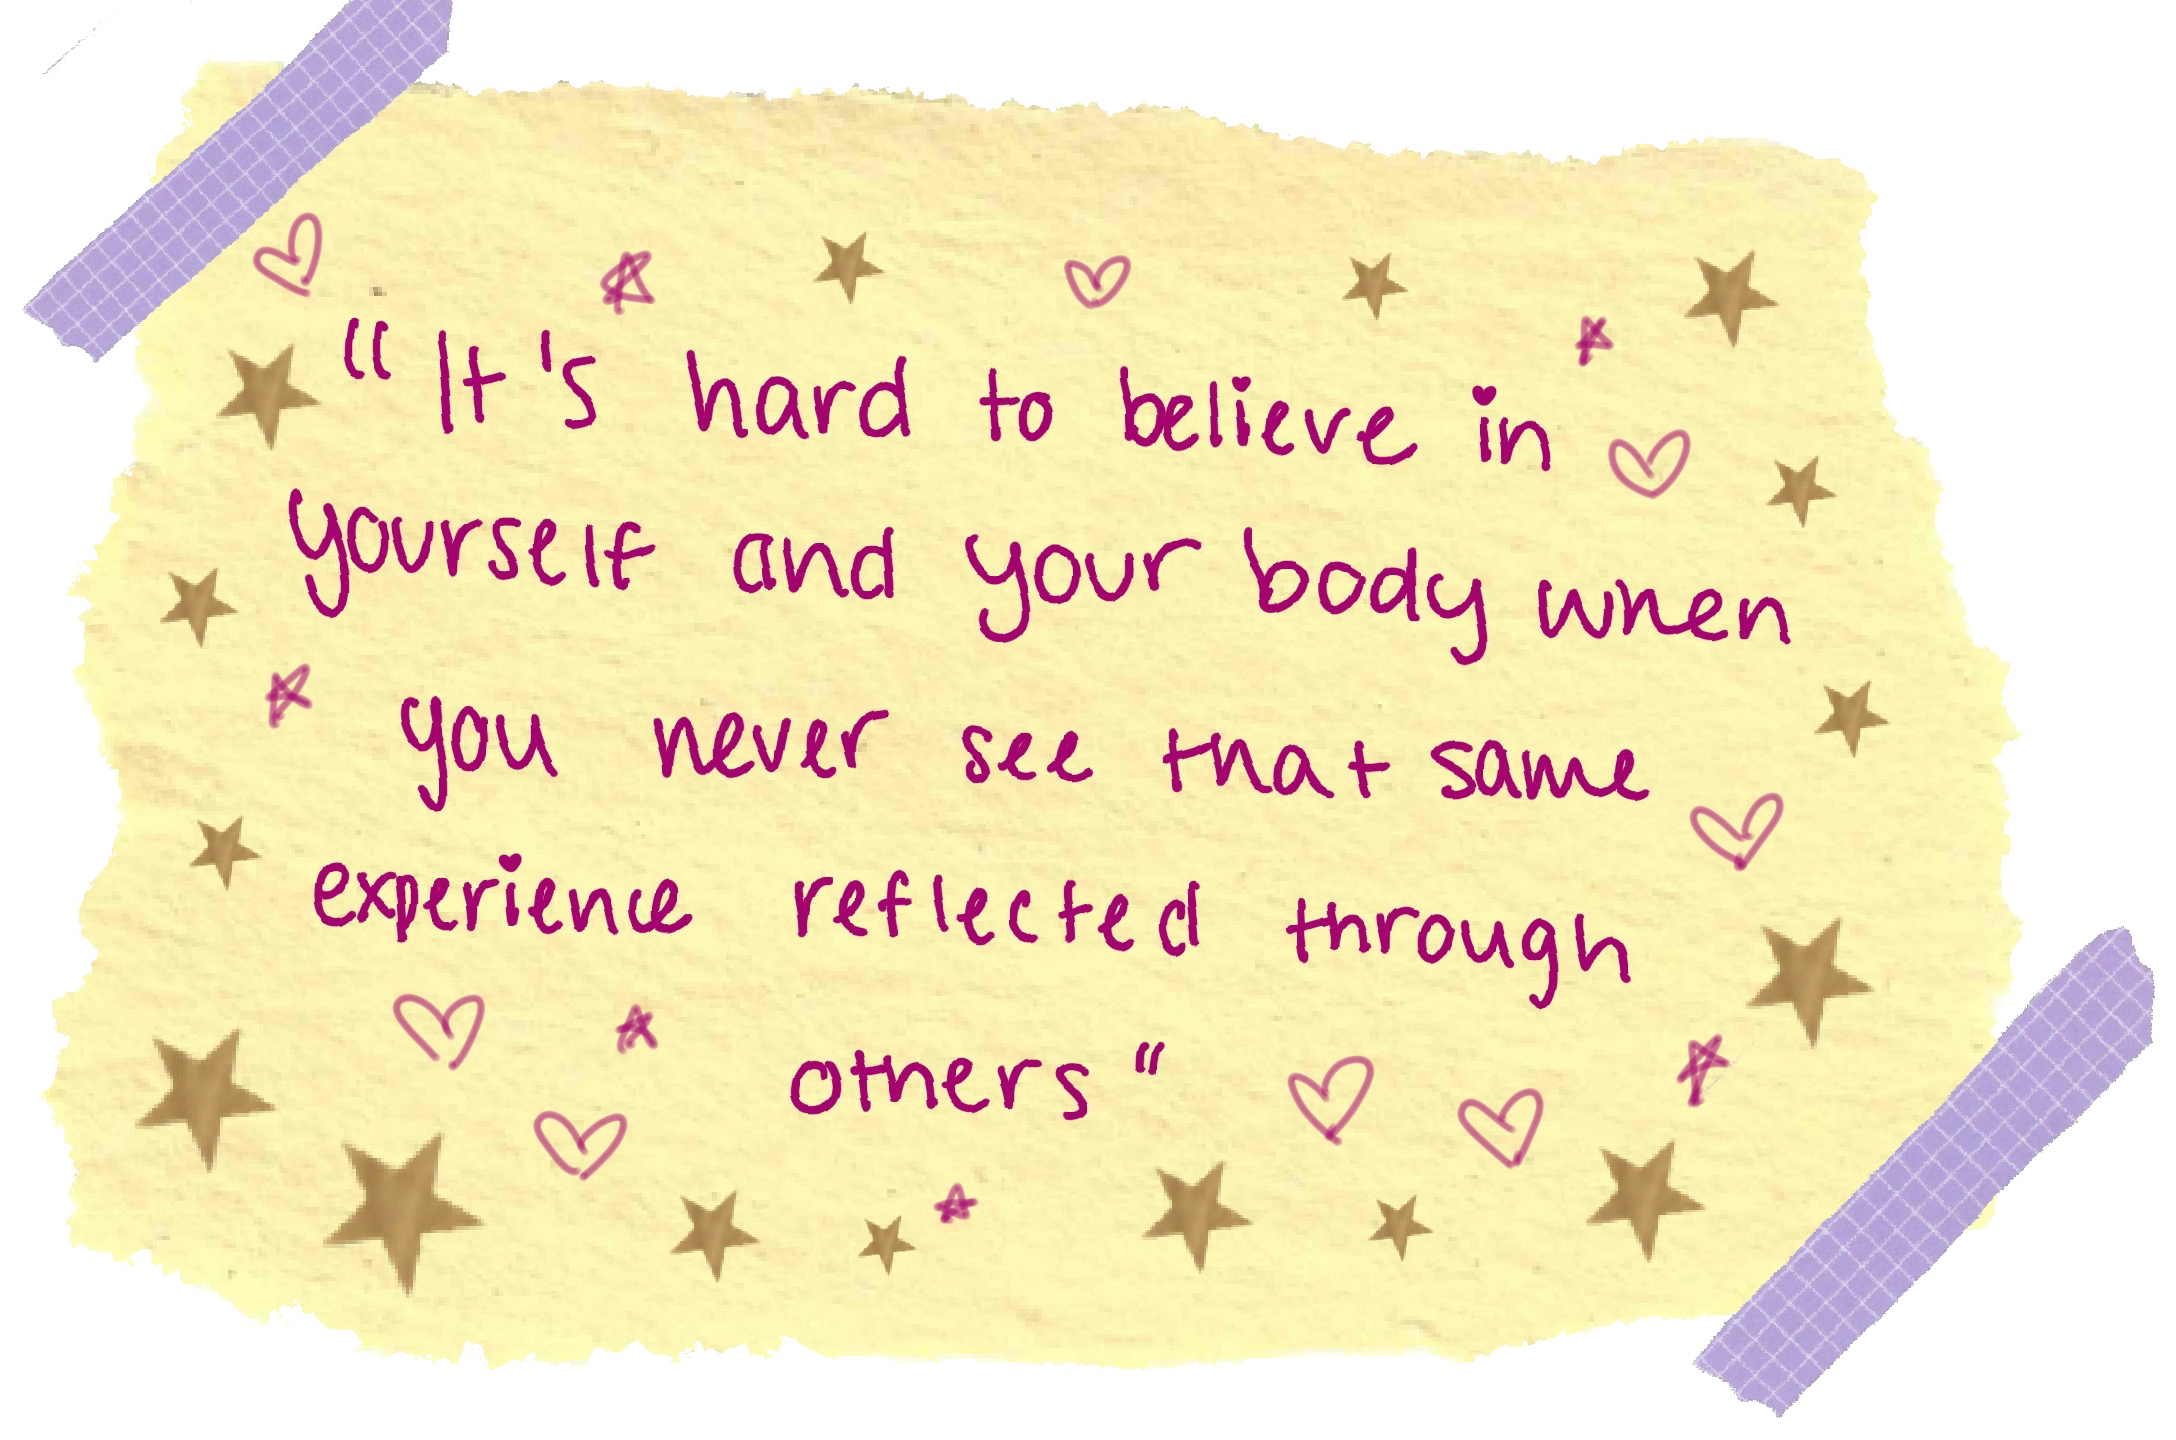 "It's hard to believe in
yourself and your body when
you never see that same
experience reflected through
others"